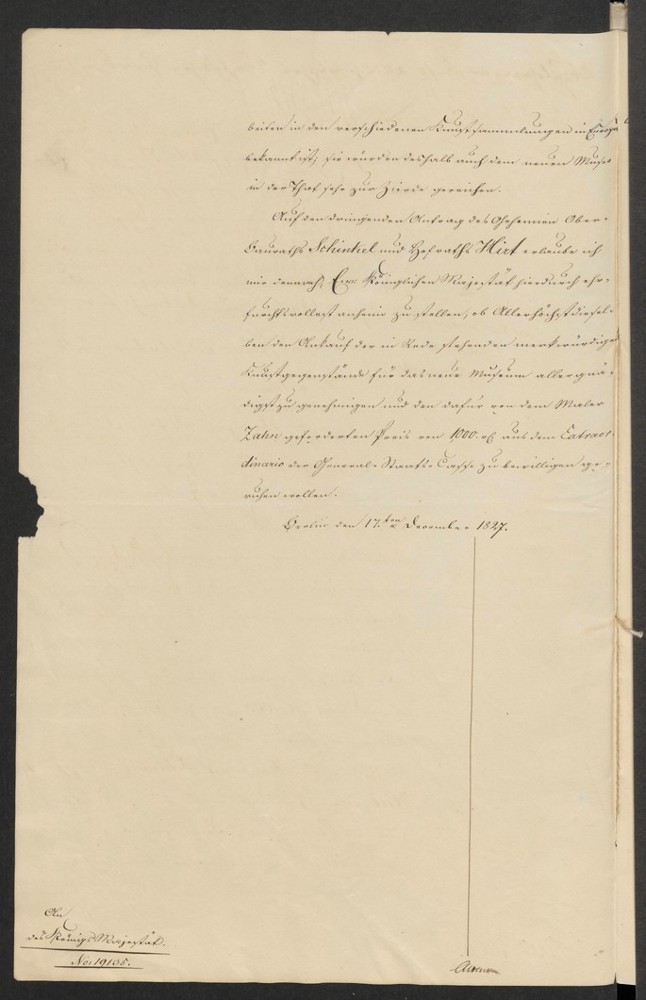 beiten in den verschiedenen Kunstsammlungen in Europa
bekannt ist; sie würden deshalb auch dem neuen Museo
in der That sehr zur Zierde gereichen.
Auf den dringenden Antrag des Geheimen Ober-
Bauraths Schinkel und Hofraths Hirt erlaube ich
mir demnach, Ew: Königlichen Majestät hierdurch ehr-
furchtsvollest anheim zu stellen, ob Allerhöchstdiesel-
ben den Ankauf der in Rede stehenden merkwürdigen
Kunstgegenstände für das neue Museum allergnä-
digst zu genehmigen und den dafür von dem Maler
Zahn geforderten Preis von 1000 rt aus dem Extraor-
dinario der General-Staats-Casse zu bewilligen ge-
ruhen wollen.
Berlin den 17ten December 1827.
An
des Königs Majestät.
No: 19135.